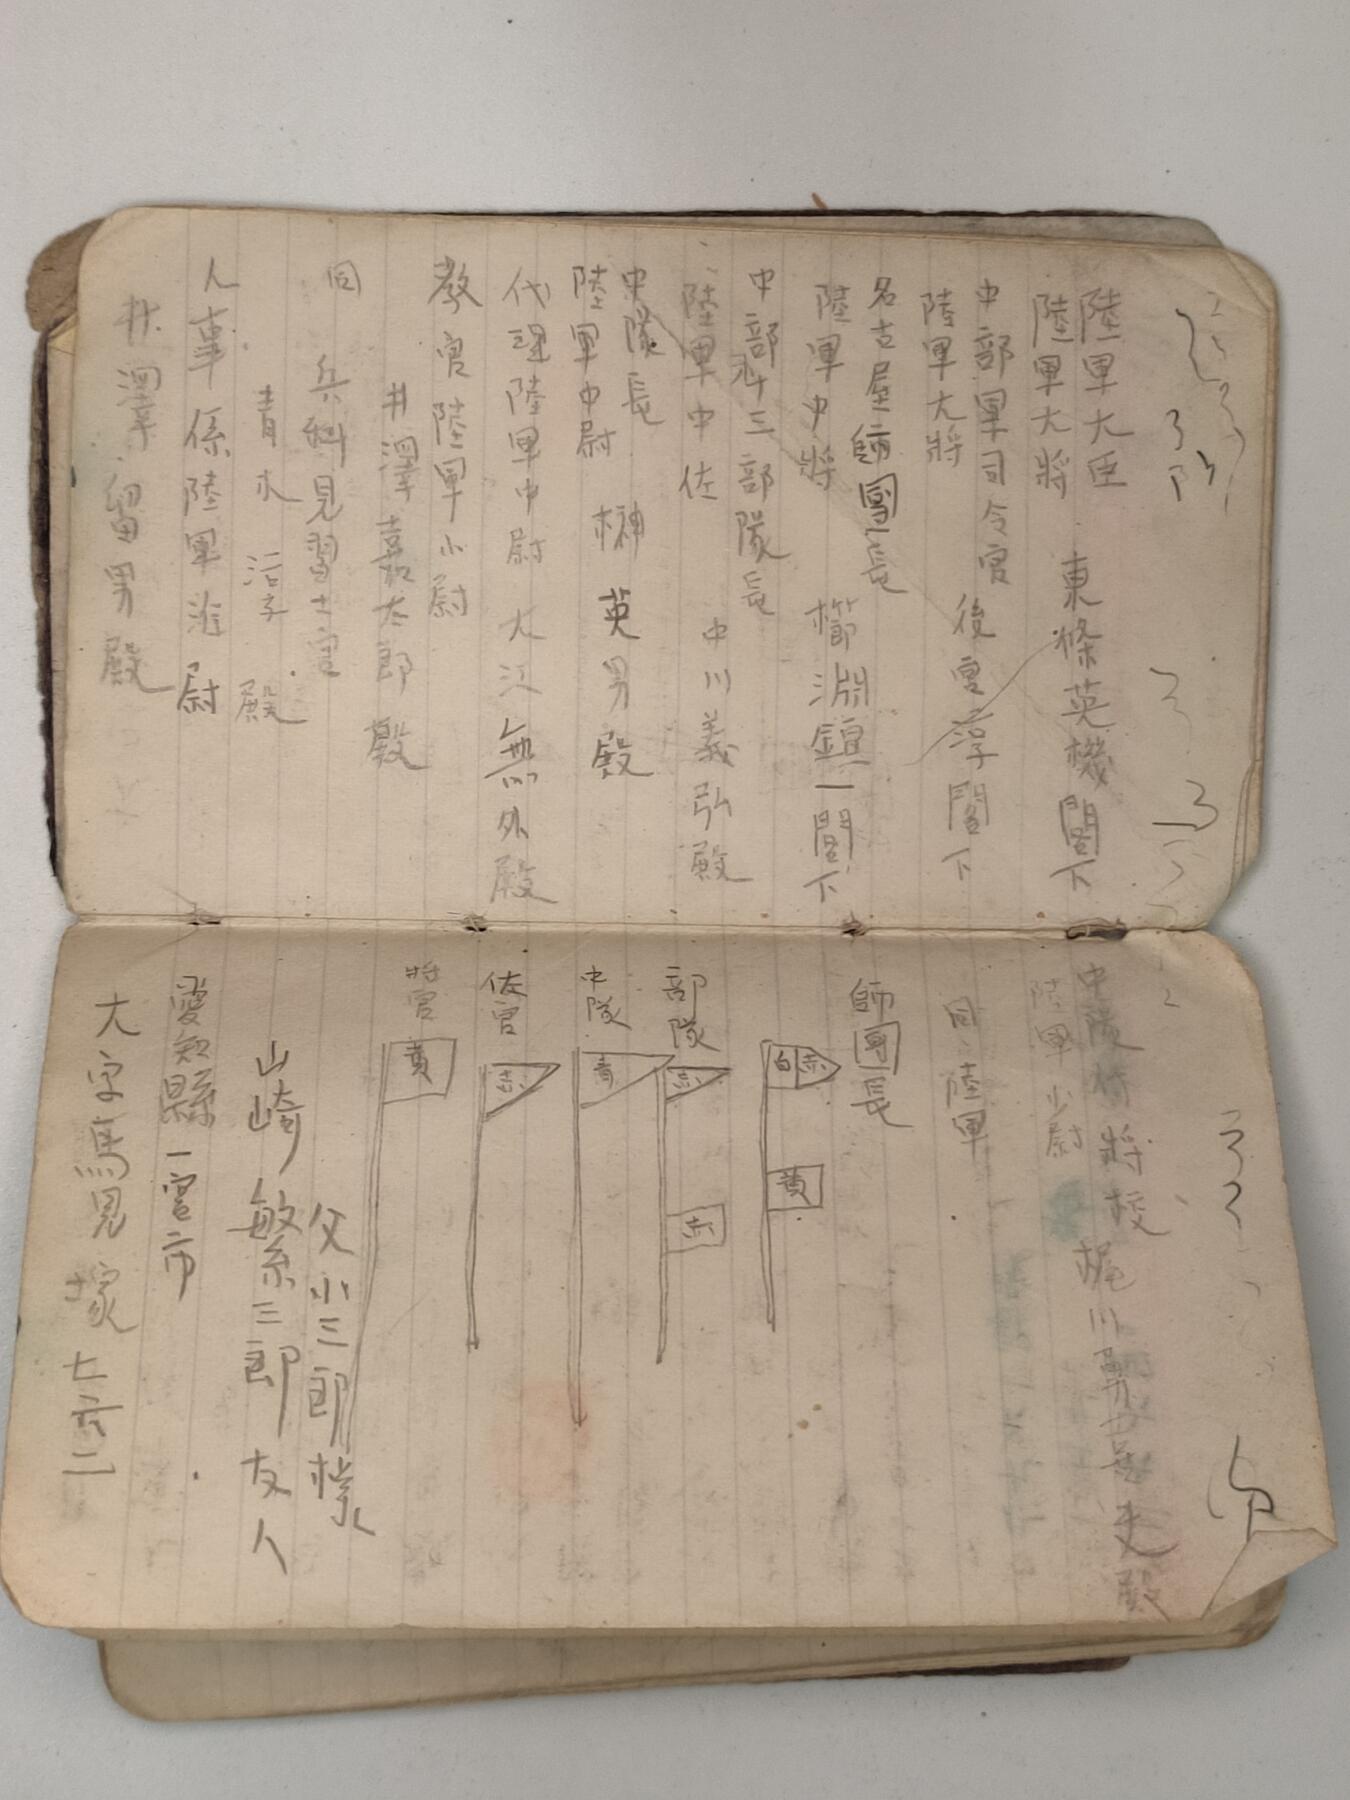 陸軍大臣
陸軍大將 東條英機閣下
中部軍司令官
陸軍大將 後宮淳閣下
名古屋師團長
陸軍中將 櫛淵鍹一閣下
中部第三部隊長
陸軍中佐 中川義弘殿
中隊長
陸軍中尉 榊英男殿
代理陸軍中尉 大江無外殿
教官陸軍小尉
井澤嘉太郎殿
同 兵科見習士官
青木 殿
人事係陸軍准尉
井澤留男殿
中隊附將校 梶川勇 夫殿
陸軍小尉
同 陸軍
師團長
白 赤
黄
部隊
赤
赤
中隊
青
佐官
赤
將官
黄
父小三郎様
山崎繁三郎友人
愛知縣一宮市
大字馬見塚七六二